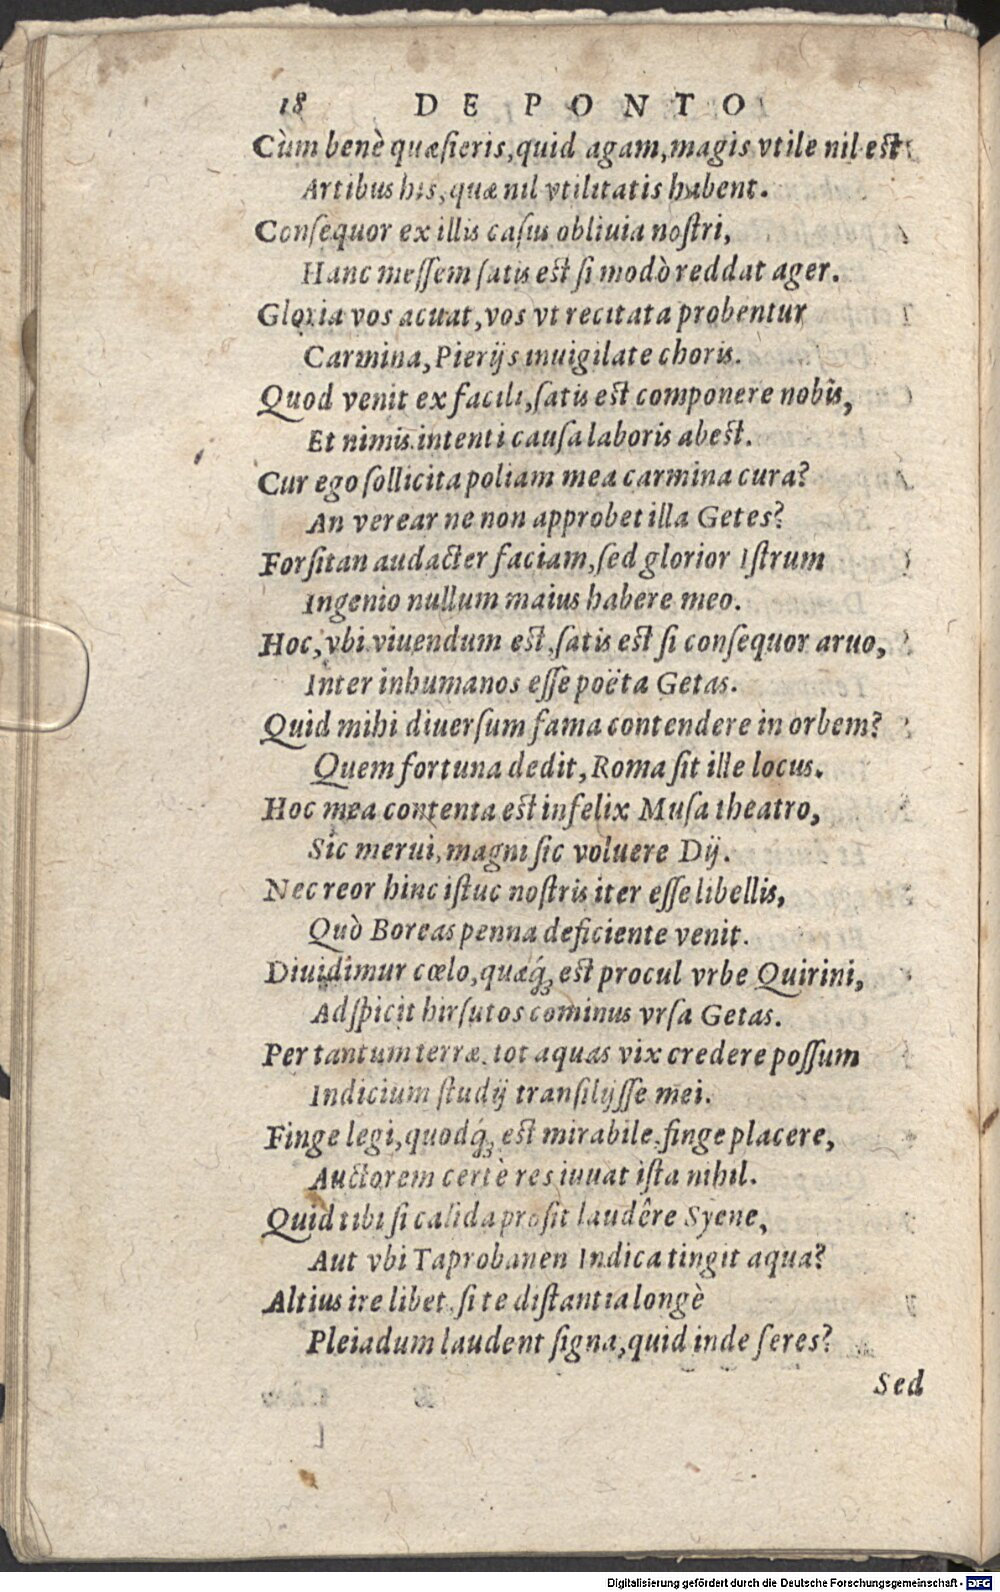 18 DE PONTO
Cùm benè quæsieris, quid agam, magis vtile nil est
Artibus his, quæ nil vtilitatis habent.
Consequor ex illis casus obliuia nostri,
Hanc messem satis est si modò reddat ager.
Gloria vos acuat, vos vt recitata probentur
Carmina, Pierijs inuigilate choris.
Quod venit ex facili, satis est componere nobis,
Et nimis intenti causa laboris abest.
Cur ego sollicita poliam mea carmina cura?
An verear ne non approbet illa Getes?
Forsitan audacter faciam, sed glorior Istrum
Ingenio nullum maius habere meo.
Hoc, vbi viuendum est, satis est si consequor aruo,
Inter inhumanos esse poëta Getas.
Quid mihi diuersum fama contendere in orbem?
Quem fortuna dedit, Roma sit ille locus.
Hoc mea contenta est infelix Musa theatro,
Sic merui, magni sic voluere Dij.
Nec reor hinc istuc nostris iter esse libellis,
Quò Boreas penna deficiente venit.
Diuidimur cœlo, quæq́; est procul vrbe Quirini,
Adspicit hirsutos cominus vrsa Getas.
Per tantum terræ, tot aquas vix credere possum
Indicium studij transilijsse mei.
Finge legi, quodq́; est mirabile, finge placere,
Auctorem certè res iuuat ista nihil.
Quid tibi si calida prosit laudêre Syene,
Aut vbi Taprobanen Indica tingit aqua?
Altius ire libet, si te distantia longè
Pleiadum laudent signa, quid inde feres?
Sed
Digitalisierung gefördert durch die Deutsche Forschungsgemeinschaft - DFG